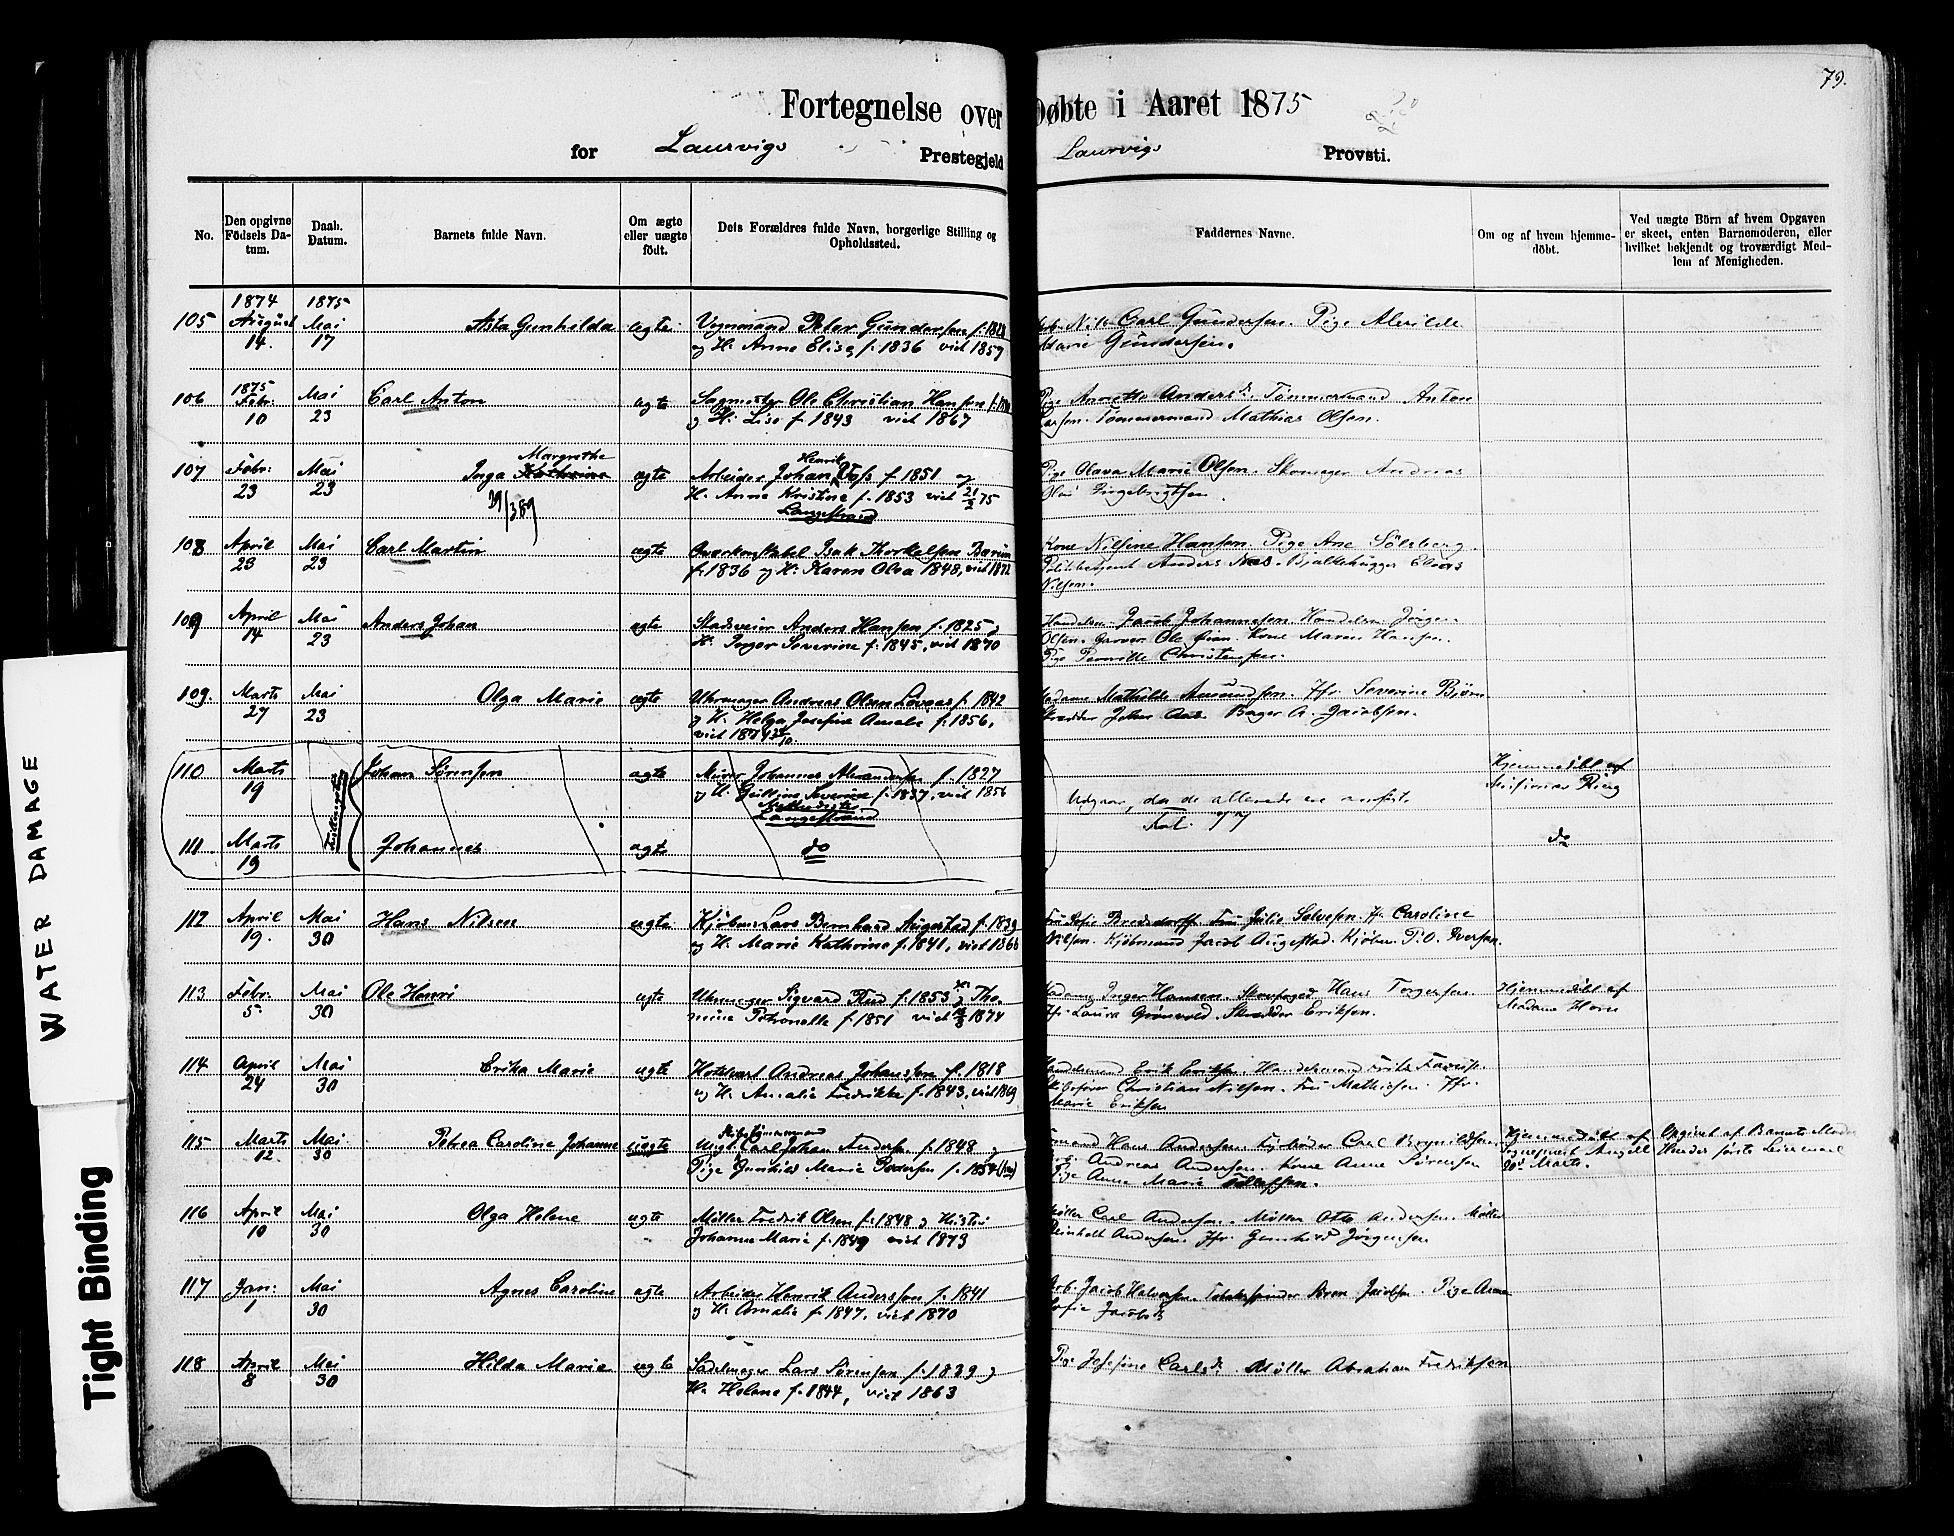 79.
Fortegnelse over Døbte i Aaret 1875
for Laurvigs Prestegjeld Laurvigs Provsti.
No.
Den opgivne Födsels Datum.
Daab. Datum.
Barnets fulde Navn.
Om ægte eller uægte födt.
Dets Forældres fulde Navn, borgerlige Stilling og Opholdssted.
Faddernes Navne.
Om og af hvem hjemmedöbt.
Ved uægte Börn af hvem Opgaven er skeet, enten Barnemoderen, eller hvilket bekjendt og troværdigt Medlem af Menigheden.
1874 1875
105 August 14. Mai 17 Asta Gunhilda ægte Vognmand Peter Gundersen f. 1828 Carl Gundersen. Pige Alvilde
og H. Anne Elise f. 1836 viet 1859 Marie Gundersen.
1875
106 Febr. 10 Mai 23 Carl Anton ægte Sagmester Ole Christian Hansen Pige Anette Andersd. Tømmermand Anton
og H. Lise f. 1843 viet 1867 Larsen. Tømmermand Mathias Olsen.
Margrethe Henrik
107 Febr: 23 Mai 23 Inga Kathrine ægte Arbeider Johan Voss f. 1851 og Pige Olava Marie Olsen. Skomager Andreas
H. Anne Kristine f. 1853 viet 21/2 75
29/3 89 Langestrand
108 April 23 Mai 23 Carl Martin ægte Isak Thorkelsen Kone Nilsine Hansen. Pige Ane Sølsberg.
f. 1836 og H: Karen Olea 1848, viet 1872 Politibetjent Anders Næs. Bjælkehugger Elias
Nilsen.
109 April 14 Mai 23 Anders Johan ægte Anders Hansen f. 1825 og Jacob Johannesen Jörgen
H: Inger Severine f. 1845, viet 1870 Olsen. Garver Ole Kone Maren Hansen.
Pige Pernille Christensen.
109. Marts 27 Mai 23 Olga Marie ægte Uhrmager Andreas Olsen Lövaas f. 1842 Madame Mathilde Amundsen. Jfr. Severine Björn
og H. Helga Josefine Amalie f. 1856, Skrædder John Aas. Bager A. Jacobsen.
viet 1874
110 Marts 19 Tvillinger Johan Sørensen ægte Murer Johannes f. 1827 Hjemmedöbt af
og H. Severine f. 1837, viet 1856 Udgaar, da de allerede ere anført. Ring
Langestrand Fol. 77
111 Marts 19 Johannes ægte do do
112 April 19. Mai 30 Hans Nilsen ægte Kjøbm. Lars Bernhard Augestad f. 1839 Fru Sofie Bredsdorff. Fru Julie Selvesen. Jfr. Caroline
og H. Marie Kathrine f. 1841, viet Nilsen. Kjöbmand Jacob Augestad. Kjöbm. P.O. Iversen.
113 Febr. 5. Mai 30 Ole Henri ægte Uhrmager Sigvard Rud f. 1853 og Tho- Madame Inger Hansen. Skovfoged Hans Torgersen Hjemmedöbt af
mine Petronelle f. 1851 viet 1874 Jfr. Laura Grönvold. Skrædder Eriksen. Madame Horn
114 April 24 Mai 30 Erika Marie ægte Hotelvert Andreas Johansen f. 1818 Handelsmand Erik Eriksen. Handelsmand Fritz
og H. Amalie Fredrikke f. 1843, viet 1869 Skibsfører Christian Nilsen. Fru Mathiesen. Jfr.
Marie Eriksen
Skibstömmermand
115 Marts 12 Mai. 30 Petrea Caroline Johanne uægte Ungk. Carl Johan Andersen f. 1848 og Hans Andersen. Carl Hjemmedöbt af Opgivet af Barnets Moder
Pige Gunhild Marie Pedersen f. 1854 Andreas Andersen. Kone Anne Sörensen Hendes første Leiermaal
Pige Anne Marie Olafsen. Marts.
116 April 10 Mai 30 Olga Helene ægte Møller Fredrik Olsen f. 1848 og Hustru Møller Carl Andersen. Møller Otto Andersen. Møller
Johanne Marie f. 1849 viet 1873 Reinholt Andersen. Jfr. Gunhild Jörgensen
117 Jan: 1 Mai 30 Agnes Caroline ægte Arbeider Henrik Anderssen f. 1841 Arb. Jacob Halvorsen. Tobakspinder Jacobsen. Pige Anne
og H. Amalie f. 1847. viet 1870 Sofie Jacobsd.
118 April 8 Mai 30 Hilda Marie ægte Sadelmager Lars Sørensen f. 1839 og Pige Josefine Carlsd. Møller Abraham Fredriksen
H. Helene f. 1844, viet 1863
WATER DAMAGE
Tight Binding